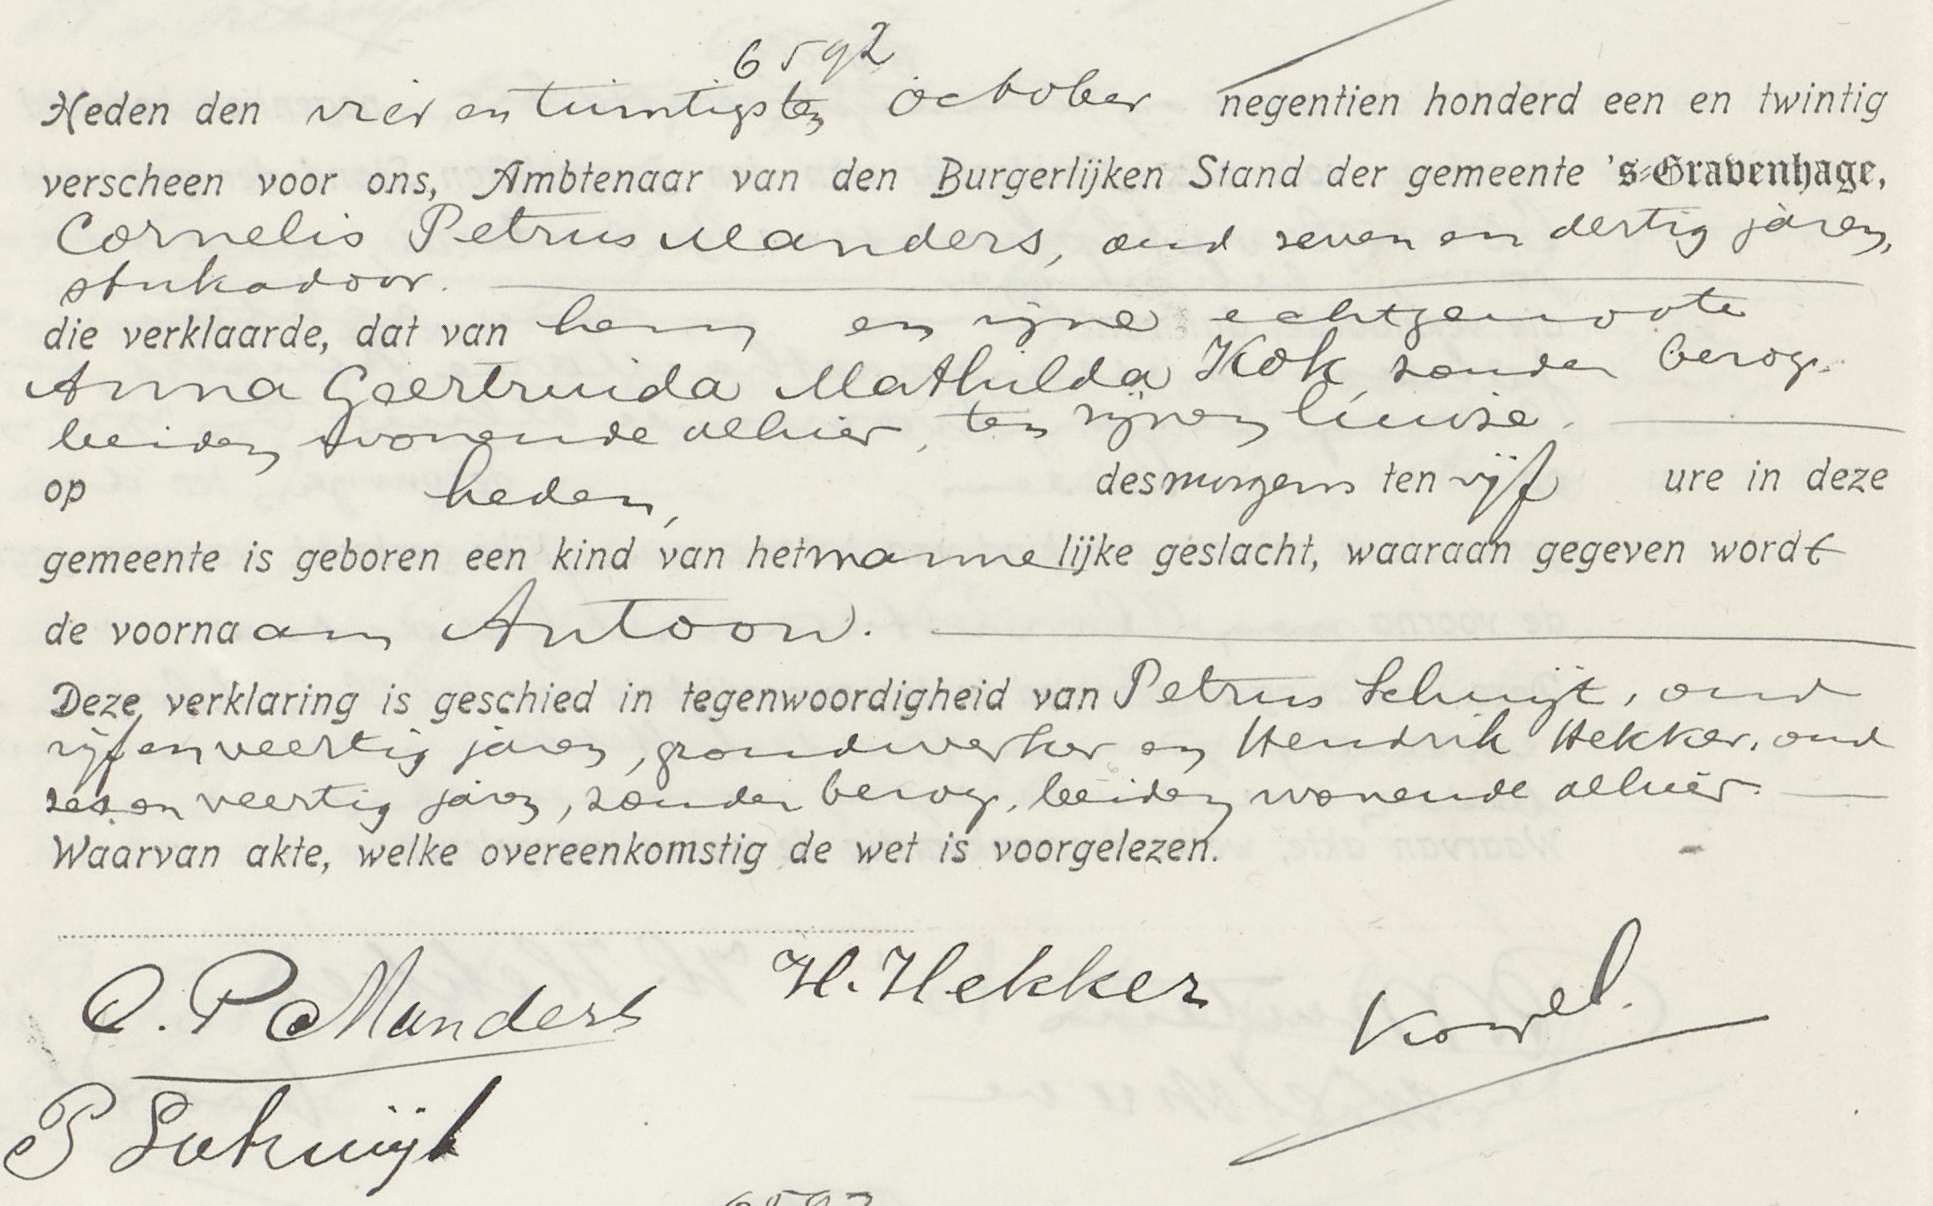 6592
Heden den vier en twintigsten october negentien honderd een en twintig
verscheen voor ons, Ambtenaar van den Burgerlijken Stand der gemeente 's-Gravenhage,
Cornelis Petrus Manders, oud zeven en dertig jaren,
stukadoor.
die verklaarde, dat van hem en zijne echtgenoote
Anna Geertruida Mathilda Kok, zonder beroep,
beiden wonende alhier, ten zijnen huize.
op heden, des morgens ten vijf ure in deze
gemeente is geboren een kind van het mannelijke geslacht, waaraan gegeven wordt
de voornaam Antoon.
Deze verklaring is geschied in tegenwoordigheid van Petrus Schuijt, oud
vijf en veertig jaren, grondwerker en Hendrik Hekker, oud
zes en veertig jaren, zonder beroep, beiden wonende alhier.
Waarvan akte, welke overeenkomstig de wet is voorgelezen.
C. P. Manders H. Hekker
P Schuijt